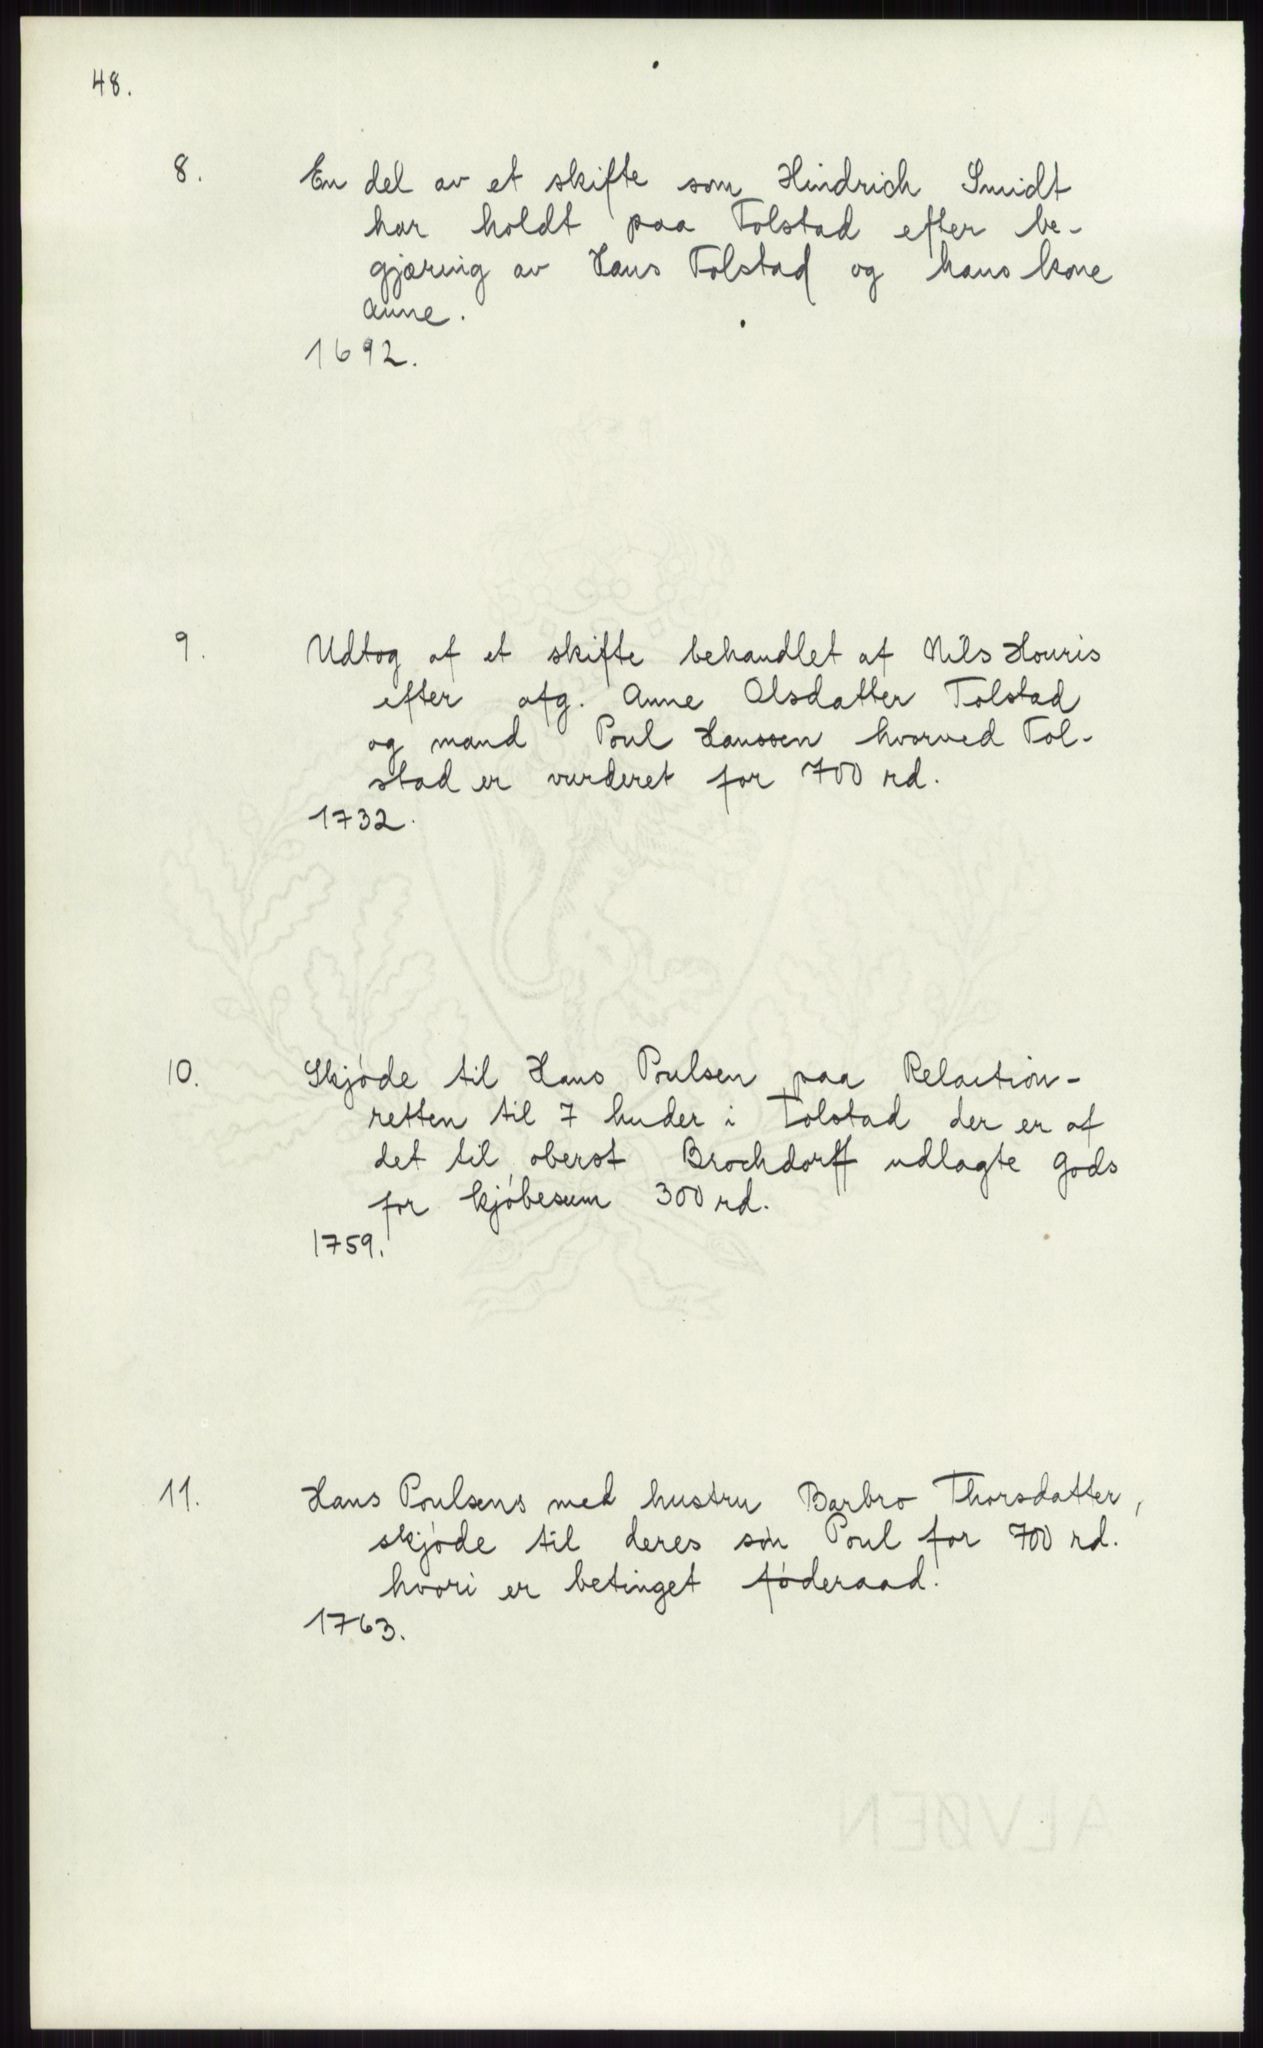 48.
8. En del av et skifte som Hindrich Smidt
har holdt paa Tolstad efter be-
gjæring av Hans Tolstad og hans kone
Anne.
1692.
9. Udtog af et skifte behandlet af Nils Houris
efter afg. Anne Olsdatter Tolstad
og mand Poul Hanssen hvorved Tol-
stad er vurderet for 700 rd.
1732.
10. Skjøde til Hans Poulsen paa Relaction-
retten til 7 huder i Tolstad der er af
det til oberst Brochdorff udlagte gods
for kjøbesum 300 rd.
1759.
11. Hans Poulsens med hustru Barbro Thorsdatter,
skjøde til deres søn Poul for 700 rd.
hvori er betinget føderaad.
1763.
ALVØEN